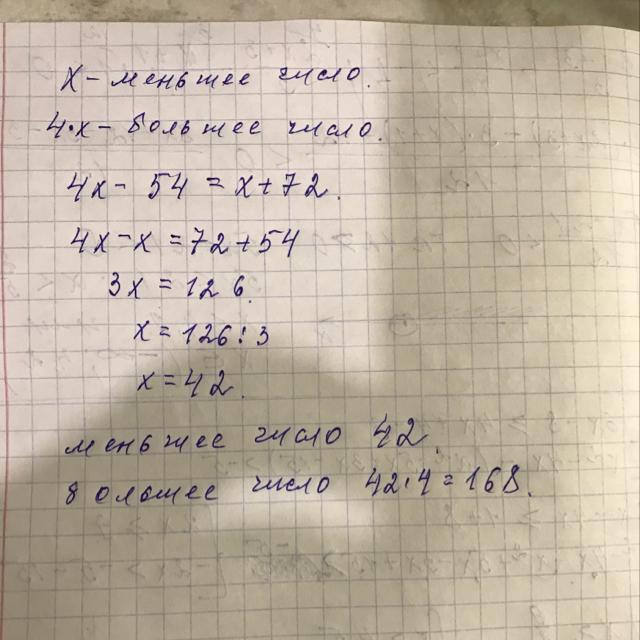 x - меньшее число.
4·x - большее число.
4x - 54 = x + 72.
4x - x = 72 + 54
3x = 126.
x = 126 : 3
x = 42.
меньшее число 42.
большее число 42·4 = 168.